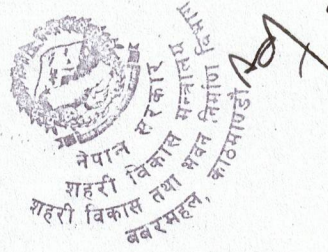 नेपाल सरकार
शहरी विकास मन्त्रालय
शहरी विकास तथा भवन निर्माण विभाग
बबरमहल, काठमाण्डौ